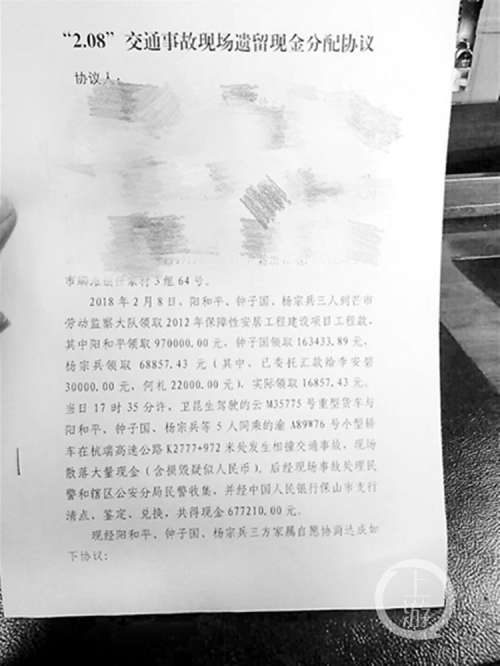 “2.08”交通事故现场遗留现金分配协议
协议人：
3组 64号。
2018年2月8日，阳和平、钟子国、杨宗兵三人到芒市
劳动监察大队领取2012年保障性安居工程建设项目工程款，
其中阳和平领取 970000.00元，钟子国领取163433.89元，
杨宗兵领取 68857.43元（其中，已委托汇款给李安碧
30000.00元，何礼 22000.00元），实际领取 16857.43元。
当日17时35分许，卫昆生驾驶的云M35775号重型货车与
阳和平、钟子国、杨宗兵等5人同乘的渝A89W76号小型轿
车在杭瑞高速公路K2777+972米处发生相撞交通事故，现场
散落大量现金（含损毁疑似人民币）。后经现场事故处理民
警和辖区公安分局民警收集，并经中国人民银行保山市支行
清点、鉴定、兑换，共得现金677210.00元。
现经阳和平、钟子国、杨宗兵三方家属自愿协商达成如
下协议：
上游